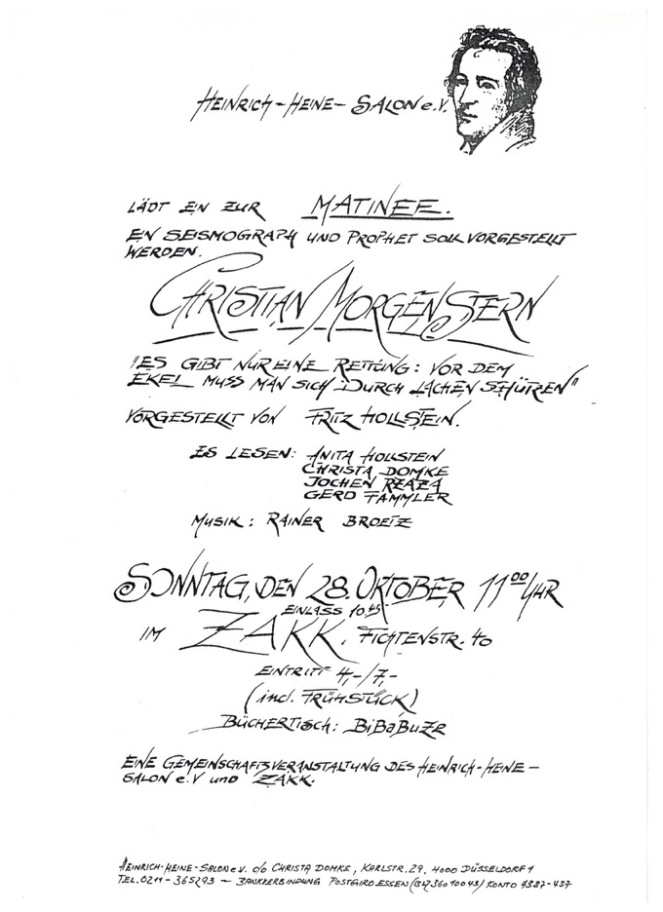 HEINRICH-HEINE-SALON e.V.
LÄDT EIN ZUR MATINEE.
EIN SEISMOGRAPH UND PROPHET SOLL VORGESTELLT
WERDEN.
CHRISTIAN MORGENSTERN
"ES GIBT NUR EINE RETTUNG: VOR DEM
EKEL MUSS MAN SICH DURCH LACHEN SCHÜTZEN"
VORGESTELLT VON FRITZ HOLLSTEIN.
ES LESEN: ANITA HOLLSTEIN
CHRISTA DOMKE
JOCHEN
GERD TAMMLER
MUSIK: RAINER BROETZ
SONNTAG, DEN 28. OKTOBER 11 00 UHR
EINLASS 10.45
IM ZAKK. FICHTENSTR. 40
EINTRITT 4,-/7,-
(incl. FRÜHSTÜCK)
BÜCHERTISCH: BiBaBuZe
EINE GEMEINSCHAFTSVERANSTALTUNG DES HEINRICH-HEINE-
SALON e.V und ZAKK.
HEINRICH-HEINE-SALON e.V. c/o CHRISTA DOMKE, KARLSTR. 29, 4000 DÜSSELDORF 1
TEL. 0211-365293 — BANKVERBINDUNG POSTGIRO ESSEN KONTO 4387-437